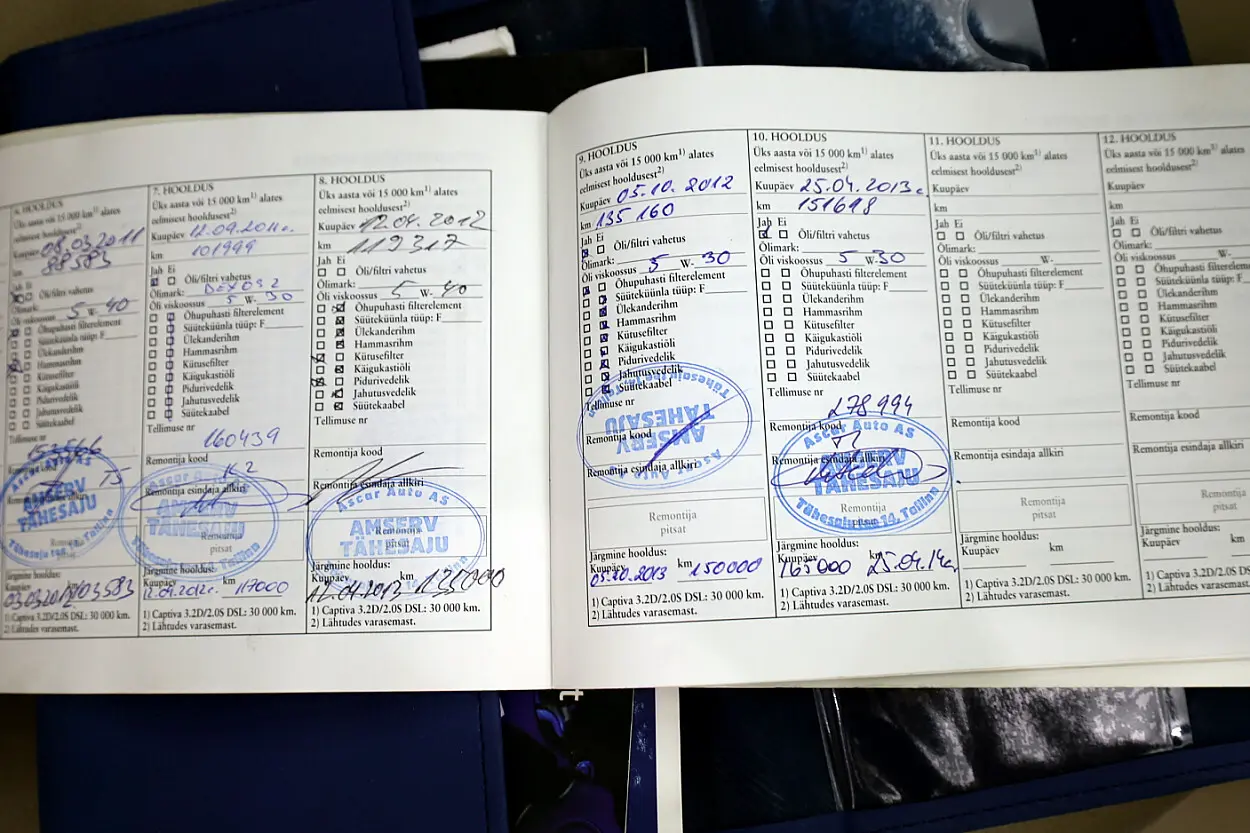 6. HOOLDUS
Üks aasta või 15 000 km¹⁾ alates
eelmisest hooldusest²⁾
Kuupäev 08.03.2011
km 88583
Õli/filtri vahetus
Õlimark:
Õli viskoossus 5 W- 40
Õhupuhasti filterelement
Süüteküünla tüüp: F
Ülekanderihm
Hammasrihm
Kütusefilter
Käigukastiõli
Pidurivedelik
Jahutusvedelik
Süütekaabel
Tellimuse nr
AMSERV
TÄHESAJU
Järgmine hooldus:
1) Captiva 3.2D/2.0S DSL: 30 000 km.
2) Lähtudes varasemast.
7. HOOLDUS
Üks aasta või 15 000 km¹⁾ alates
eelmisest hooldusest²⁾
Kuupäev 12.09.2011.
km 101999
Jah Ei
Õli/filtri vahetus
Õlimark: DEXOS 2
Õli viskoossus 5 W- 30
Õhupuhasti filterelement
Süüteküünla tüüp: F
Ülekanderihm
Hammasrihm
Kütusefilter
Käigukastiõli
Pidurivedelik
Jahutusvedelik
Süütekaabel
Tellimuse nr
160439
Remontija kood
K2
Remontija esindaja allkiri
Ascar Auto AS
AMSERV
TÄHESAJU
Remontija
pitsat
Järgmine hooldus:
Kuupäev km
12.09.2012. 117000
1) Captiva 3.2D/2.0S DSL: 30 000 km.
2) Lähtudes varasemast.
8. HOOLDUS
Üks aasta või 15 000 km¹⁾ alates
eelmisest hooldusest²⁾
Kuupäev 12.04.2012
km 119317
Jah Ei
Õli/filtri vahetus
Õlimark:
Õli viskoossus 5 W- 40
Õhupuhasti filterelement
Süüteküünla tüüp: F
Ülekanderihm
Hammasrihm
Kütusefilter
Käigukastiõli
Pidurivedelik
Jahutusvedelik
Süütekaabel
Tellimuse nr
Remontija kood
Remontija esindaja allkiri
Ascar Auto AS
AMSERV
TÄHESAJU
Remontija
pitsat
Järgmine hooldus:
Kuupäev km
12.04.2013 135000
1) Captiva 3.2D/2.0S DSL: 30 000 km.
2) Lähtudes varasemast.
9. HOOLDUS
Üks aasta või 15 000 km¹⁾ alates
eelmisest hooldusest²⁾
Kuupäev 05.10.2012
km 135 160
Jah Ei
Õli/filtri vahetus
Õlimark:
Õli viskoossus 5 W- 30
Õhupuhasti filterelement
Süüteküünla tüüp: F
Ülekanderihm
Hammasrihm
Kütusefilter
Käigukastiõli
Pidurivedelik
Jahutusvedelik
Süütekaabel
Tellimuse nr
Remontija kood
Remontija esindaja allkiri
Ascar Auto AS
AMSERV
TÄHESAJU
Remontija
pitsat
Järgmine hooldus:
Kuupäev km
05.10.2013 150000
1) Captiva 3.2D/2.0S DSL: 30 000 km.
2) Lähtudes varasemast.
10. HOOLDUS
Üks aasta või 15 000 km¹⁾ alates
eelmisest hooldusest²⁾
Kuupäev 25.04.2013.
km 151698
Jah Ei
Õli/filtri vahetus
Õlimark:
Õli viskoossus 5 W- 30
Õhupuhasti filterelement
Süüteküünla tüüp: F
Ülekanderihm
Hammasrihm
Kütusefilter
Käigukastiõli
Pidurivedelik
Jahutusvedelik
Süütekaabel
Tellimuse nr
178994
Remontija kood
Remontija esindaja allkiri
Ascar Auto AS
AMSERV
TÄHESAJU
Tähesaju tee 14, Tallinn
pitsat
Järgmine hooldus:
Kuupäev km
165000 25.04.14.
1) Captiva 3.2D/2.0S DSL: 30 000 km.
2) Lähtudes varasemast.
11. HOOLDUS
Üks aasta või 15 000 km¹⁾ alates
eelmisest hooldusest²⁾
Kuupäev
km
Jah Ei
Õli/filtri vahetus
Õlimark:
Õli viskoossus W-
Õhupuhasti filterelement
Süüteküünla tüüp: F
Ülekanderihm
Hammasrihm
Kütusefilter
Käigukastiõli
Pidurivedelik
Jahutusvedelik
Süütekaabel
Tellimuse nr
Remontija kood
Remontija esindaja allkiri
Remontija
pitsat
Järgmine hooldus:
Kuupäev km
1) Captiva 3.2D/2.0S DSL: 30 000 km.
2) Lähtudes varasemast.
12. HOOLDUS
Üks aasta või 15 000 km¹⁾ alates
eelmisest hooldusest²⁾
Kuupäev
km
Jah Ei
Õli/filtri vahetus
Õlimark:
Õli viskoossus W-
Õhupuhasti filterelement
Süüteküünla tüüp: F
Ülekanderihm
Hammasrihm
Kütusefilter
Käigukastiõli
Pidurivedelik
Jahutusvedelik
Süütekaabel
Tellimuse nr
Remontija kood
Remontija esindaja allkiri
Remontija
pitsat
Järgmine hooldus:
Kuupäev km
1) Captiva 3.2D/2.0S DSL: 30 000 km.
2) Lähtudes varasemast.